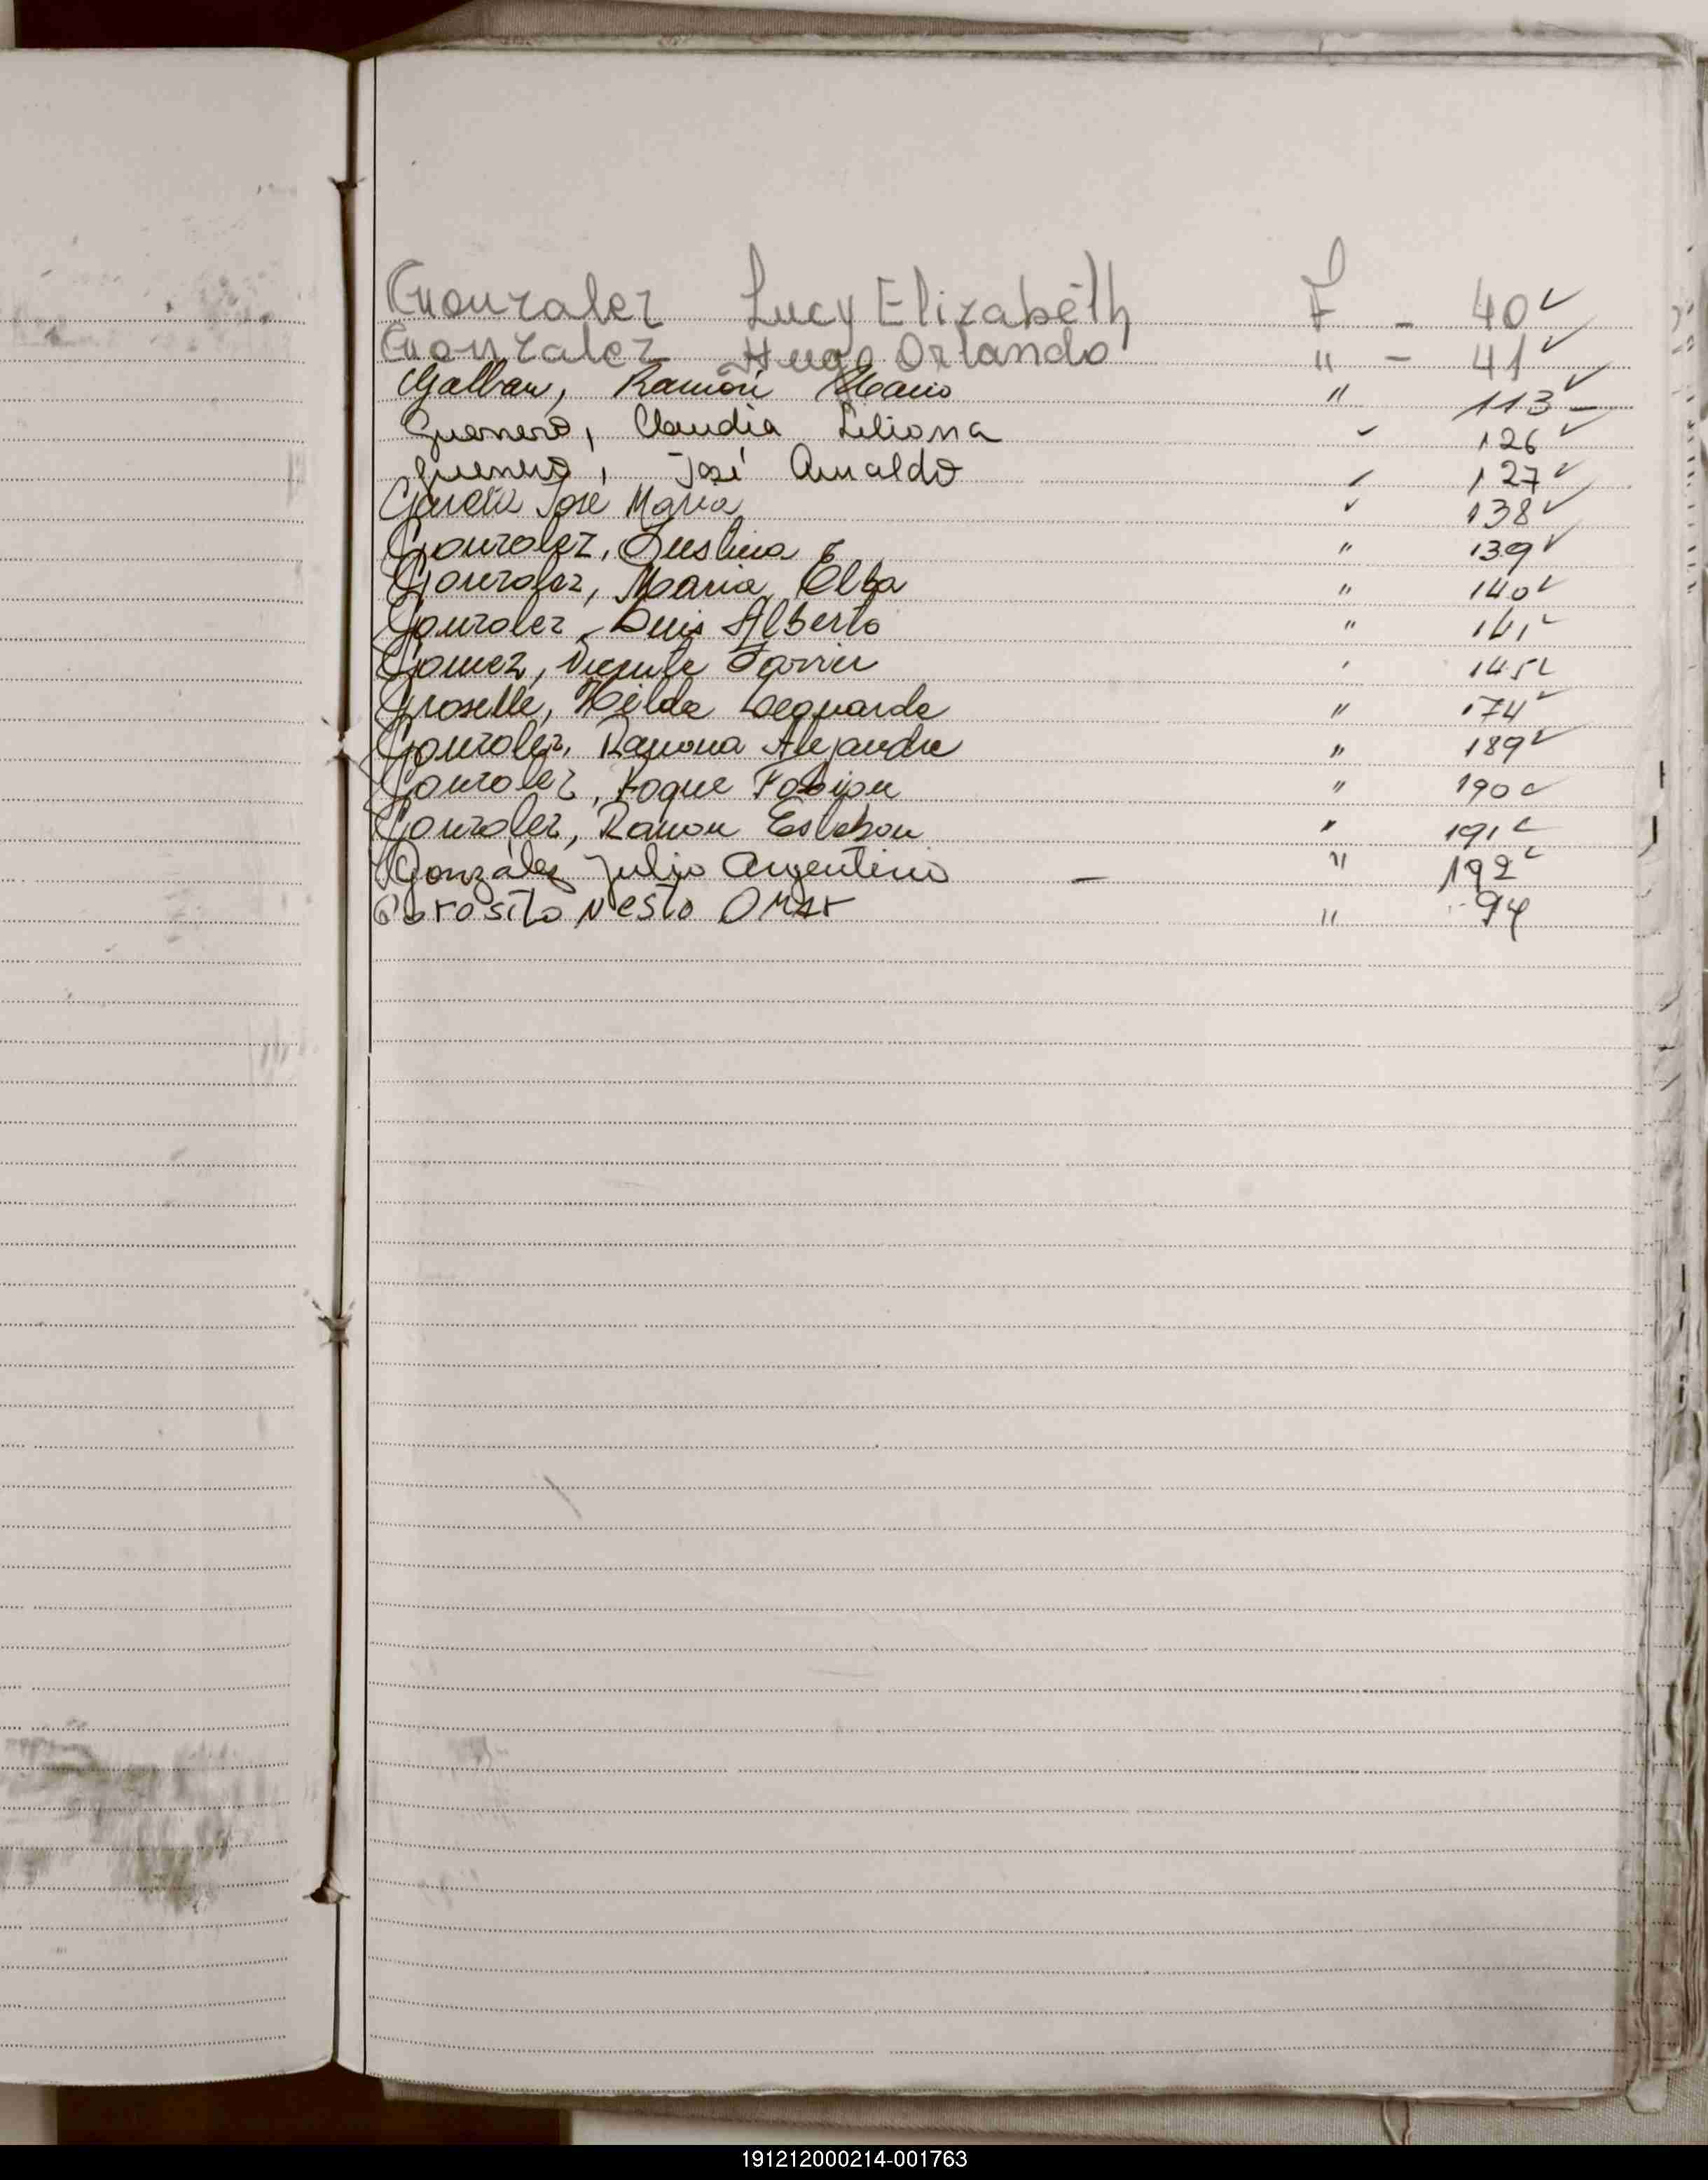 Gonzalez Lucy Elizabeth F - 40 ✓
Gonzalez Hugo Orlando " - 41 ✓
Galban, Ramón Mario " 113 ✓
Guerrero, Claudia Liliana " 126 ✓
Guerrero, José Arnaldo " 127 ✓
García José María " 138 ✓
Gonzalez, Justina E " 139 ✓
Gonzalez, Maria Elba " 140 ✓
Gonzalez, Luis Alberto " 141 ✓
Gomez, Vicente Javier " 145 ✓
Hilda " 174 ✓
Gonzalez, Ramona Alejandra " 189 ✓
Gonzalez, Roque Fabian " 190 ✓
Gonzalez, Ramon Esteban " 191 ✓
González Julio Argentino — " 192 ✓
Nesto OMAr " 94
191212000214-001763